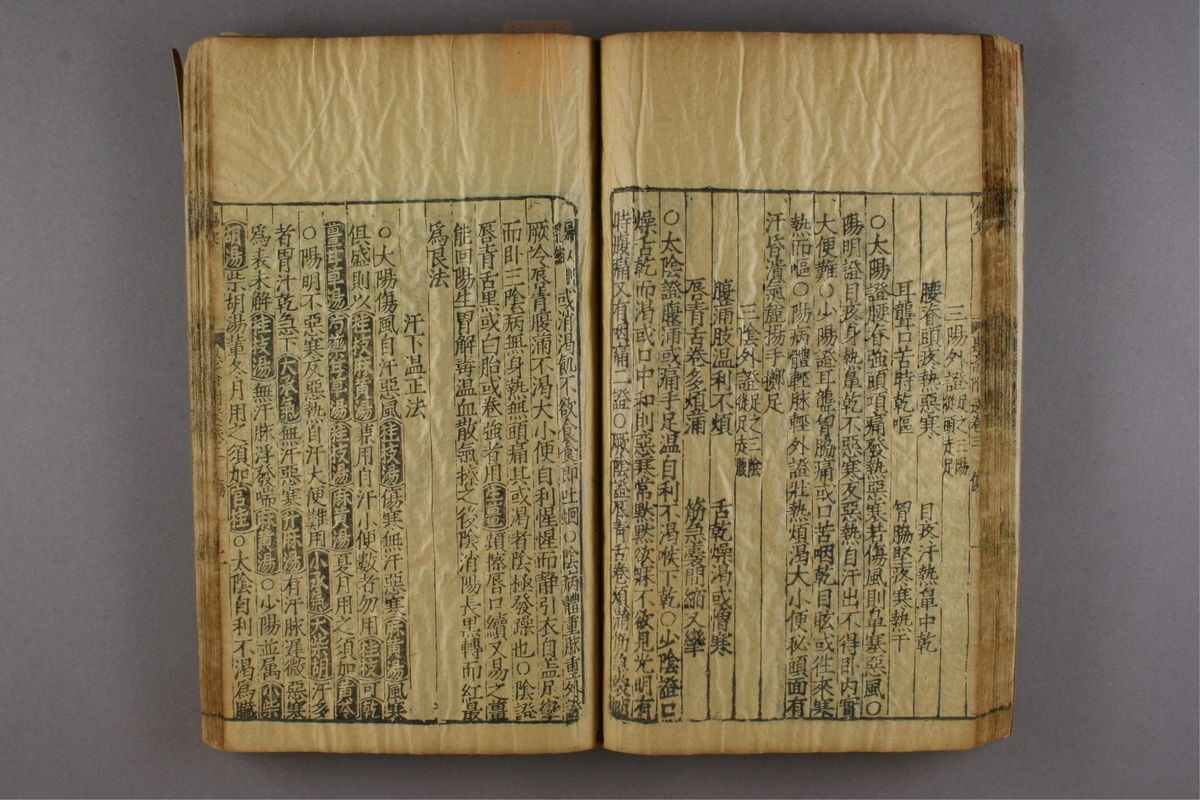 三陽外證足之三陽從頭走足
腰脊頭疼熱惡寒 目疼汗熱鼻中乾
耳聾口苦時乾嘔 胷脇堅疼寒熱干
○太陽證腰脊強頭項痛發熱惡寒若傷風則鼻塞惡風○
陽明證目疼身熱鼻乾不惡寒反惡熱自汗出不得卧內實
大便難○少陽證耳聾胷脇痛或口苦咽乾目眩或徃來寒
熱而嘔○陽病體輕脉輕外證壯熱煩渴大小便秘頭面有
汗昏潰氣麄揚手擲足
三陰外證足之三陰從足走腹
腹滿肢温利不煩 舌乾燥渴或憎寒
唇青舌卷多煩滿 筋急囊間縮又攣
○太陰證腹滿或痛手足温自利不渴喉下乾○少陰證口
燥舌乾而渴或口中和則惡寒常默默欲寐不欲見光明有
時腹痛又有咽痛二證○厥陰證唇青舌卷煩滿筋急
或消渴飢不欲食食即吐蛔○陰病體重脉重外證
厥冷唇青腹滿不渴大小便自利惺惺而静引衣自盖足攣
而卧三陰病無身熱無頭痛其或渴者陰極發躁也○陰證
唇青舌黑或白胎或卷強者用生薑頻擦唇口續又易之薑
能回陽生胃解毒温血散氣擦之後陰消陽長黑轉而紅最
爲良法
汗下温正法
○太陽傷風自汗惡風桂枝湯傷寒無汗惡寒麻黄湯風寒
俱盛則以桂枝麻黄湯兼用自汗小便數者勿用桂枝可乾
薑甘草湯芍藥甘草湯桂枝湯麻黄湯夏月用之須加黄芩
○陽明不惡寒反惡熱自汗大便難用小承氣大柴胡汗多
者胃汗乾急下大承氣無汗惡寒升麻湯有汗脉遲微惡寒
爲表未解桂枝湯無汗脉浮發喘麻黄湯○少陽並属小柴
胡湯柴胡湯輩冬月用之須加官桂○太陰自利不渴爲臟